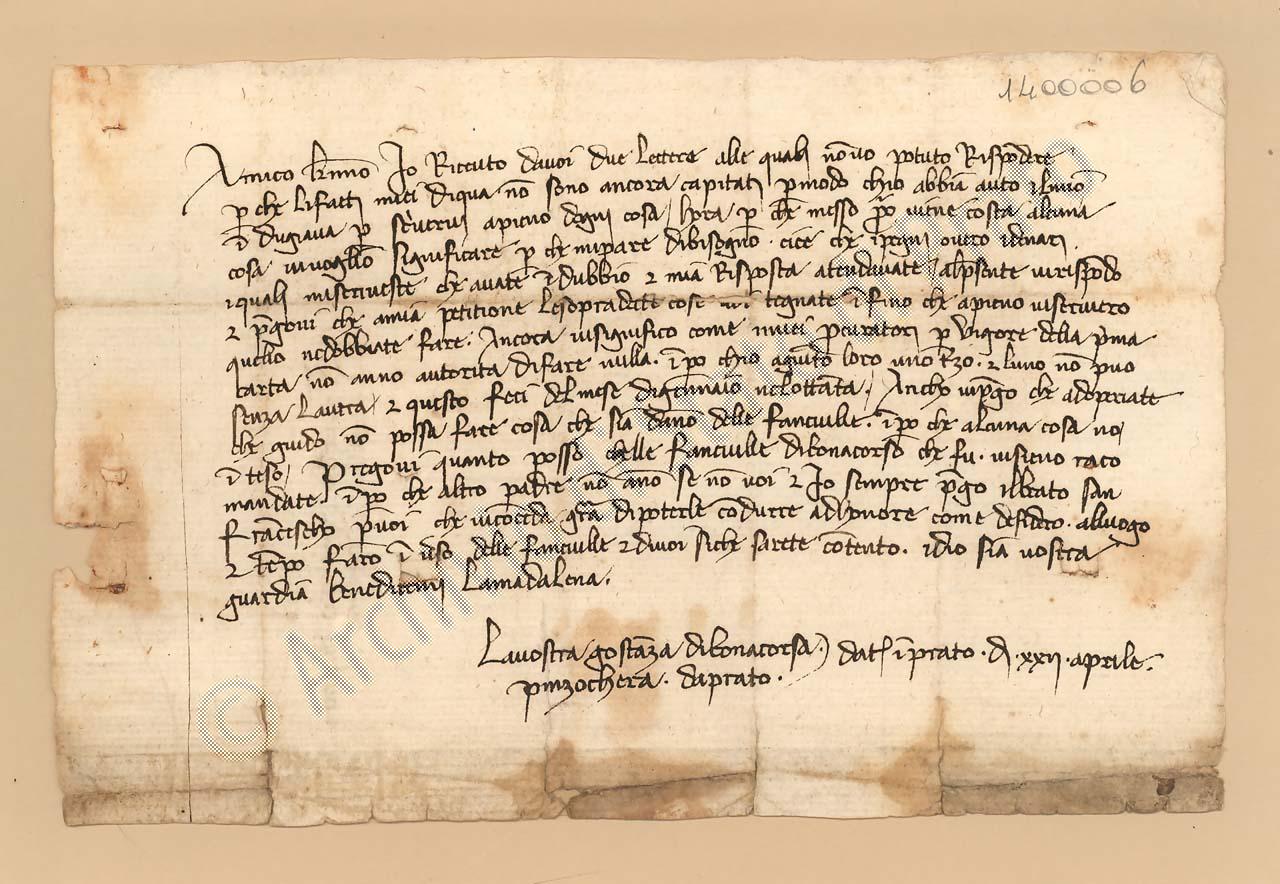 1400006
Amico kmo Io Riceuto davoi due Lettere alle quali nōvo potuto Rispōdere
p che lifatti miei diqua nō sono ancora capitati pmodo chio abbia auto
p apieno dogni cosa / hora p che messo viene costa alcuna
cosa vivoglio significare p che mipare dibisegno . cioe che ipegni overo idenari .
iquali miscriveste che avate ī dubbio & mia Risposta atendavate / alpsente virispōdo
& pgovi che amia petitione Lesopradette cose tegnate īfino che apieno viscrivero
quello nedobbiate fare . Ancora visignifico come imiei pcuratori p vigore della pma
carta nō anno autorita difare nulla . īpo chio loro . & luno nō puo
senza Laltra / & questo feci delmese digennaio nelottāta / Ancho vipgo che adopriate
che guido nō possa fare cosa che sia dāno delle fanciulle . īpo che alcuna cosa no
ī teso / Pregovi quanto posso chelle fanciulle dibonacorso che fu . visieno raco
mandate . īpo che altro padre nō āno se nō voi & Io sempre pgo ilbeato san
Frācescho pvoi che vicōceda gra dipoterle cōdurre adhonore come desidero . alluogo
& tēpo farō ī delle fanciulle & divoi siche sarete cōtento . idio sia vostra
guardia beneditemi Lamadalena .
Lavostra gostāza dibonacorsa ) dat īprato . d . xxii . aprile .
pinzochera . daprato .
© Archivio di Stato di Prato